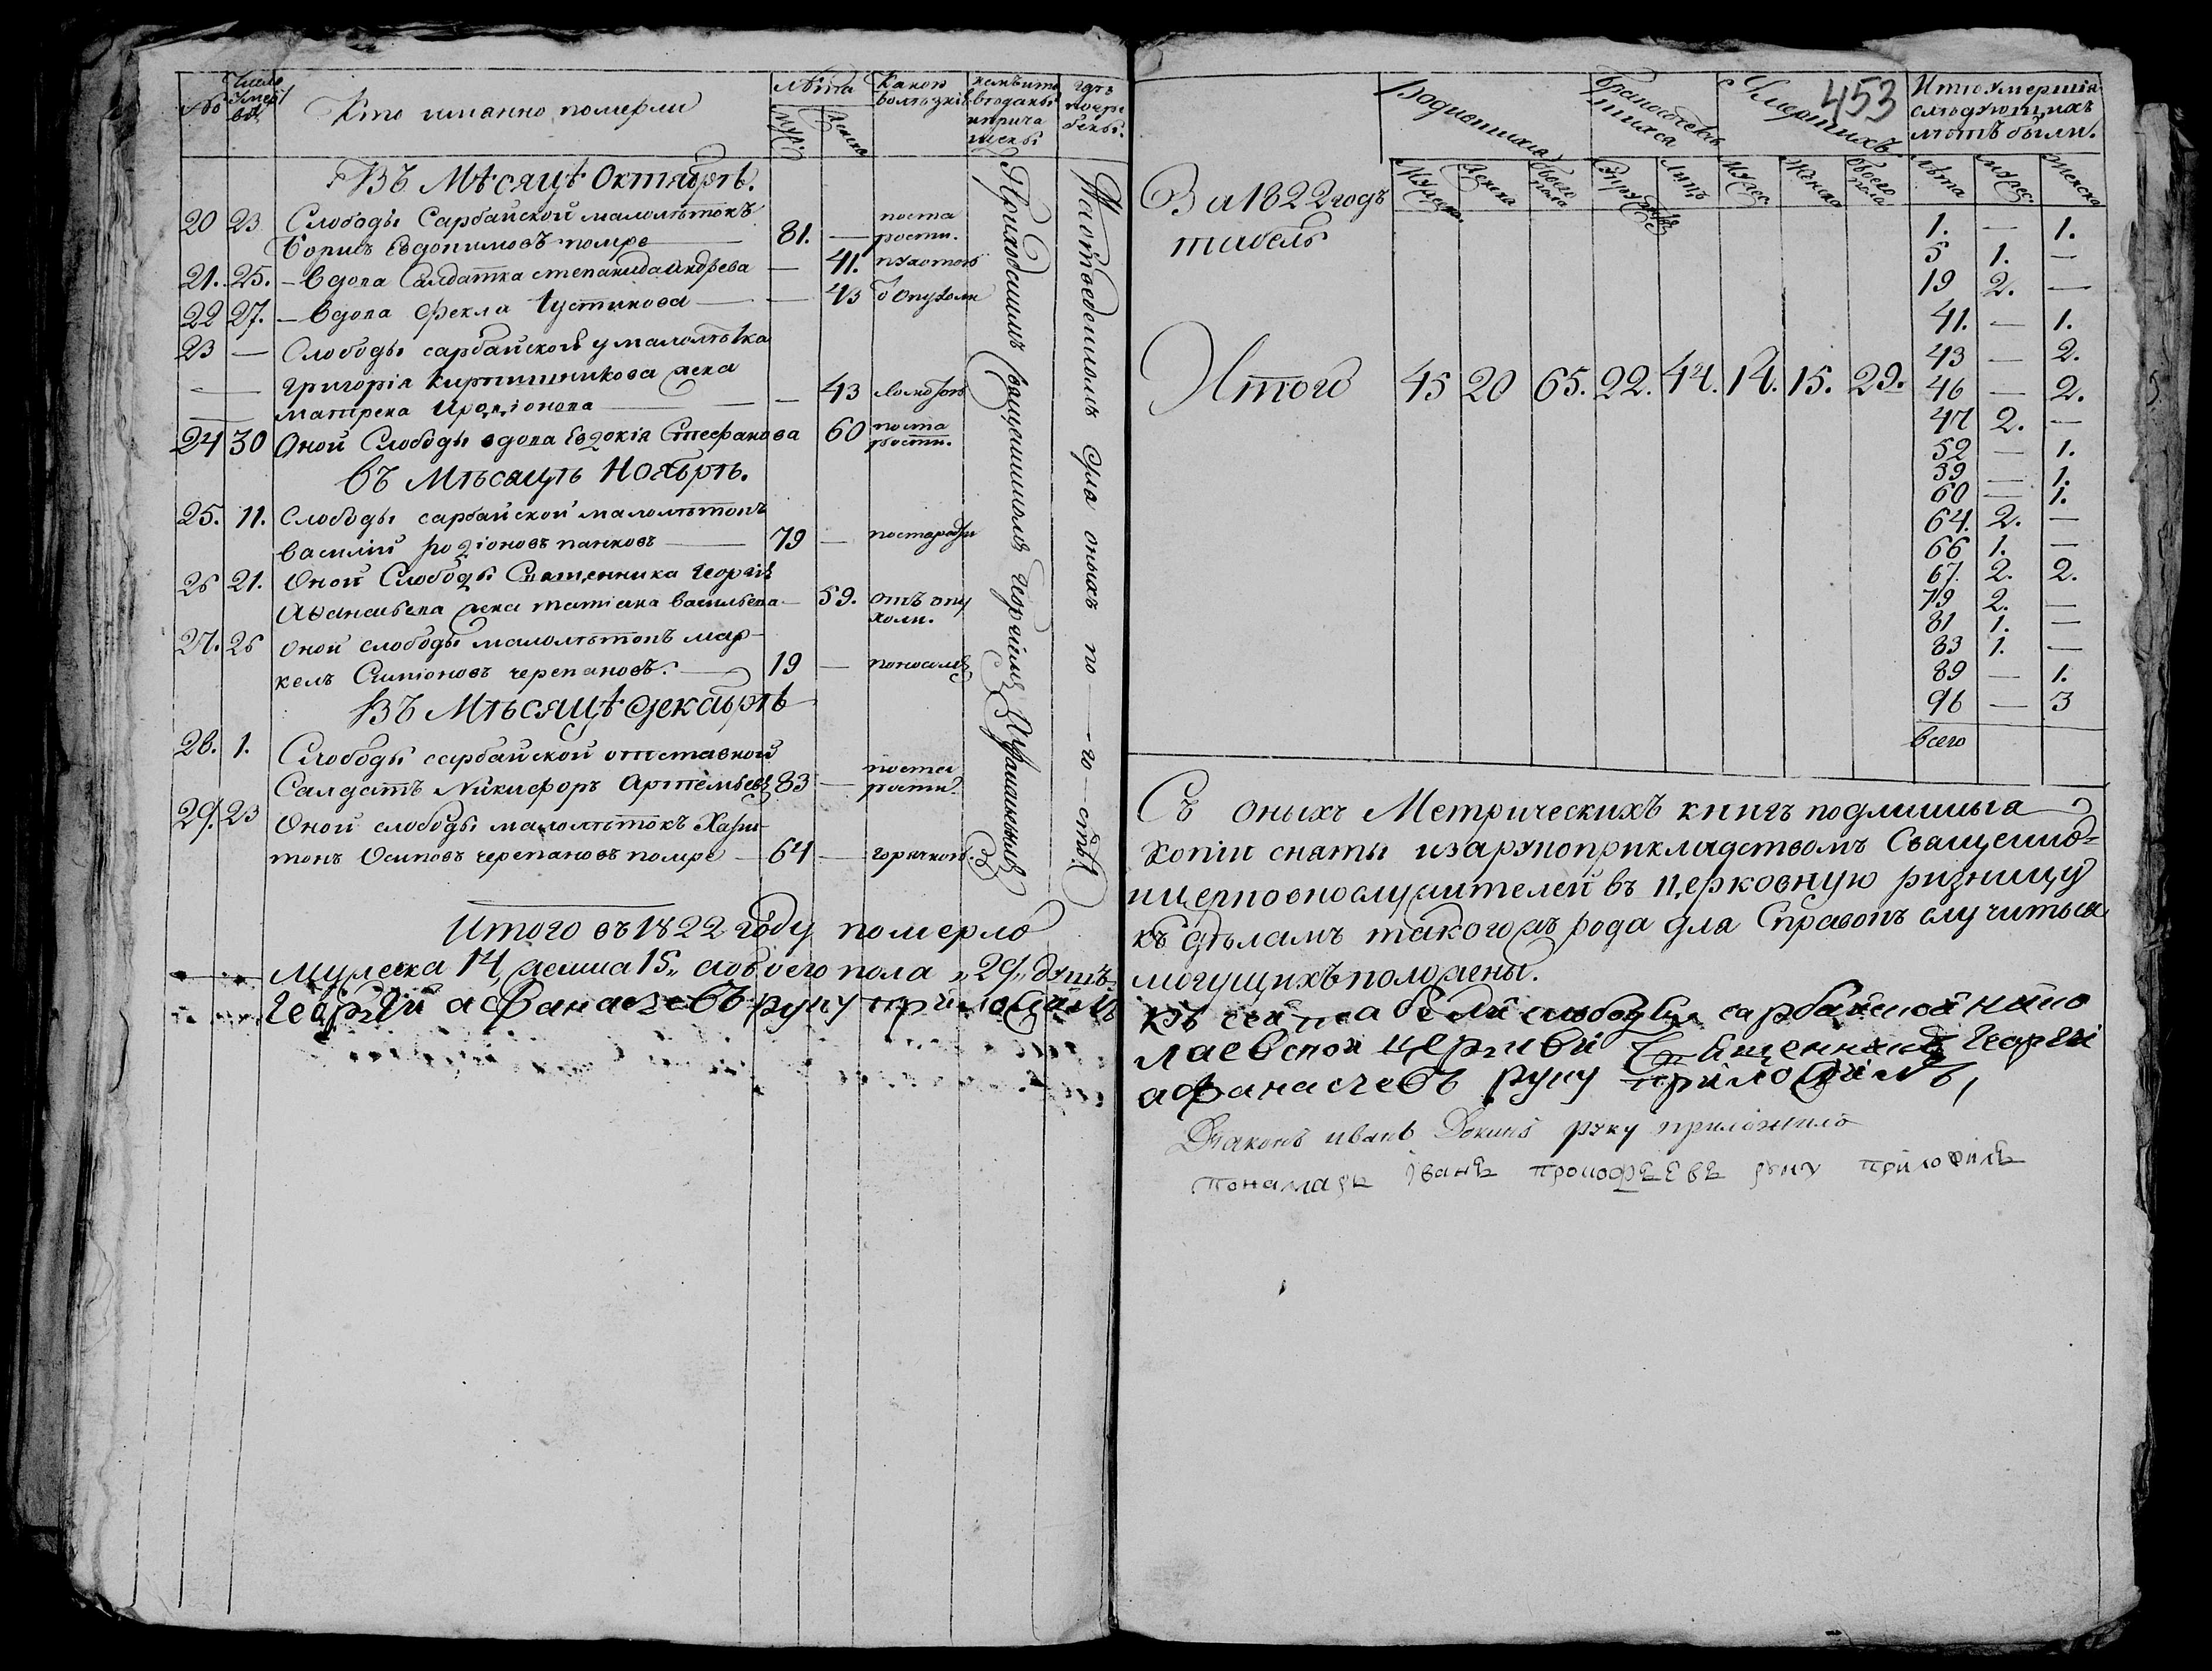 №
Число
умер
вз
Кто имянно померли
Лѣта
муж:
женска
какою
болѣзнїю
кемъ ...
гдѣ
погре
бены.
Въ Мѣсяцѣ Октябрѣ.
20 23 Слободы Сарбайской малолѣтокъ
Борисъ Евдокимовъ помре — 81. — поста
рости.
21. 25. — вдова Салдатка степанида андрева — 41.
22 27. — вдова Фекла Устинова — — 43 ѿ опухоли
23 — Слободы сарбайской у малолѣтка
— — григорїя кирпишникова жена
— матрена Иродїонова — — 43
24 30 Оной Слободы вдова Евдокїя Стефанова 60 поста
рости.
въ Мѣсяцѣ Ноябрѣ.
25. 11. Слободы сарбайской малолѣтокъ
василїй родїоновъ панковъ — 79 —
26 21. Оной Слободы Священника Георгїя
Афанасьева жена татїана васильева — 59. отъ опу
холи.
27. 26 оной слободы малолѣтокъ мар-
келъ Симїоновъ черепановъ. — 19 — поносомъ
Въ Мѣсяцѣ декабрѣ
28. 1. Слободы сарбайской отставной
Салдатъ Никифоръ Артемьевъ 83 — поста
рости.
29. 23 Оной слободы малолѣтокъ Хари-
тонъ Осиповъ черепановъ помре — 64 — горячкою.
Приходскимъ священникомъ Георгїемъ
На отведенномъ для оныхъ по — го — ств
Итого въ 1822 году померло
Мужеска 14, женска 15, а обоего пола „29„ душъ
Георгїй афанасьевъ руку приложилъ
453
Родившихся
Бракосочета
шихса
Умершихъ
И тѣ умершїя
слѣдующихъ
лѣтъ были.
Мужска.
Женска
обоего
пола
Супружес
Лицъ
Мужес
Женска
обоего
пола
лѣта
мужес
женска
За 1822 годъ
табель
Итого 45 20 65. 22. 44. 14. 15. 29.
1. — 1.
5 1. —
19 2. —
41. — 1.
43 — 2.
46 — 2.
47 2. —
52 — 1.
59 — 1.
60 — 1.
64. 2. —
66 1. —
67. 2. 2.
79 2. —
81 1. —
83 1. —
89 — 1.
96 — 3
всего
Съ оныхъ Метрическихъ книгъ подлинныя
копїи сняты и за рукоприкладствомъ Священно=
ицерковнослужителей въ церковную ризницу
къ дѣламъ такого жъ рода для Справокъ случиться
могущихъ положены.
Къ сей табели слободы сарбайской нико
лаевской церкви Священникъ Георгїй
афанасьевъ руку приложилъ,
Дїаконъ иванъ Докинъ руку приложилъ
пономарь Іванъ прокофьевъ руку приложилъ